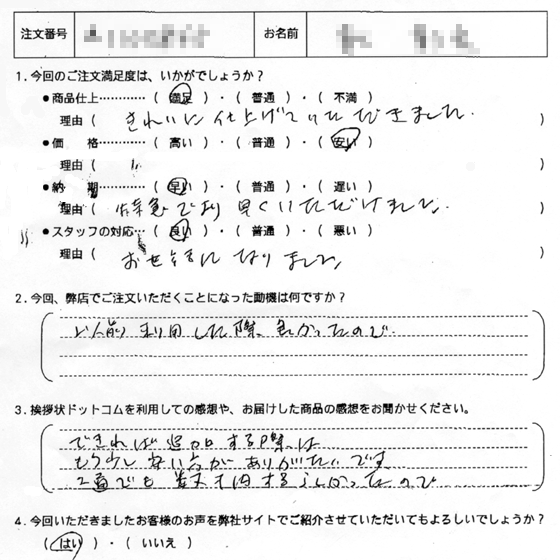 注文番号 お名前
1.今回のご注文満足度は、いかがでしょうか?
●商品仕上…………( 満足 )・( 普通 )・( 不満 )
理由( きれいに仕上げていただきました. )
●価 格…………( 高い )・( 普通 )・( 安い )
理由( )
●納 期…………( 早い )・( 普通 )・( 遅い )
理由( 特急であり 早くいただけました。 )
●スタッフの対応…( 良い )・( 普通 )・( 悪い )
理由( お世話になりました。 )
2.今回、弊店でご注文いただくことになった動機は何ですか?
以前 利用した際、良かったので.
3.挨拶状ドットコムを利用しての感想や、お届けした商品の感想をお聞かせください。
できれば追加する際は
もう少し安い方がありがたいです
でも
4.今回いただきましたお客様のお声を弊社サイトでご紹介させていただいてもよるしいでしょうか?
( はい )・( いいえ )